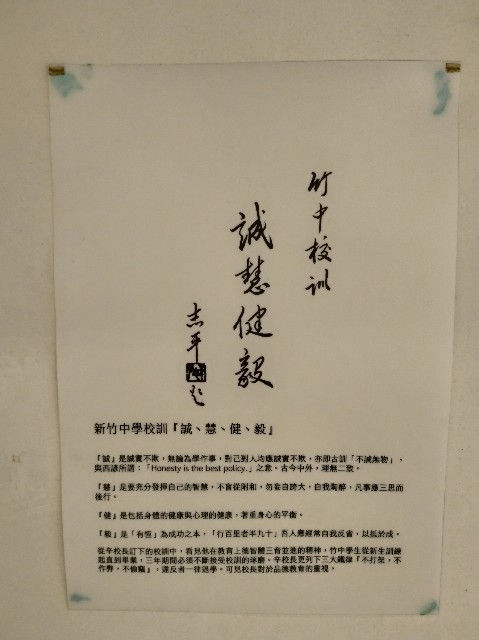 竹中校訓
誠慧健毅
志平 題
新竹中學校訓『誠、慧、健、毅』
「誠」是誠實不欺，無論為學作事，對己對人均應誠實不欺，亦即古訓「不誠無物」、
與西諺所謂：「Honesty is the best policy.」之意。古今中外，理無二致。
「慧」是要充分發揮自己的智慧，不盲從附和，勿妄自誇大，自我陶醉，凡事應三思而
後行。
『健』是包括身體的健康與心理的健康，著重身心的平衡。
「毅」是「有恆」為成功之本，「行百里者半九十」吾人應經常自我反省，以抵於成。
從辛校長訂下的校訓中，看見他在教育上德智體三育並進的精神，竹中學生從新生訓練
起直到畢業，三年期間必須不斷接受校訓的琢磨。辛校長更列下三大鐵律『不打架，不
作弊，不偷竊』，違反者一律退學。可見校長對於品德教育的重視。